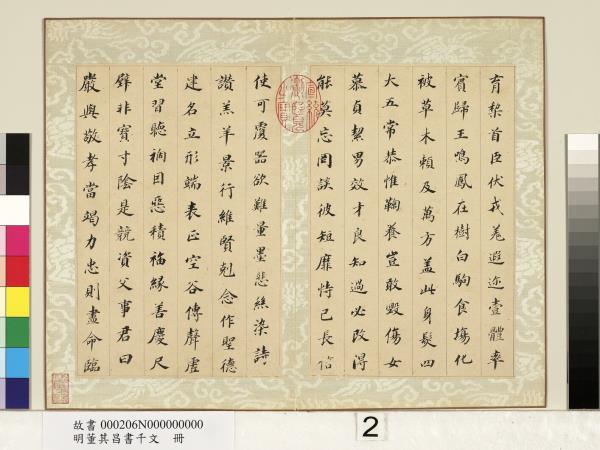 育黎首臣伏戎羌遐迩壹體率
賓歸王鳴鳳在樹白駒食場化
被草木賴及萬方蓋此身髮四
大五常恭惟鞠養豈敢毀傷女
慕貞絜男效才良知過必改得
能莫忘罔談彼短靡恃己長信
使可覆器欲難量墨悲絲染詩
讚羔羊景行維賢剋念作聖德
建名立形端表正空谷傳聲虛
堂習聽禍因惡積福緣善慶尺
璧非寶寸陰是競資父事君曰
嚴與敬孝當竭力忠則盡命臨
故書 000206N000000000
明董其昌書千文 冊
2